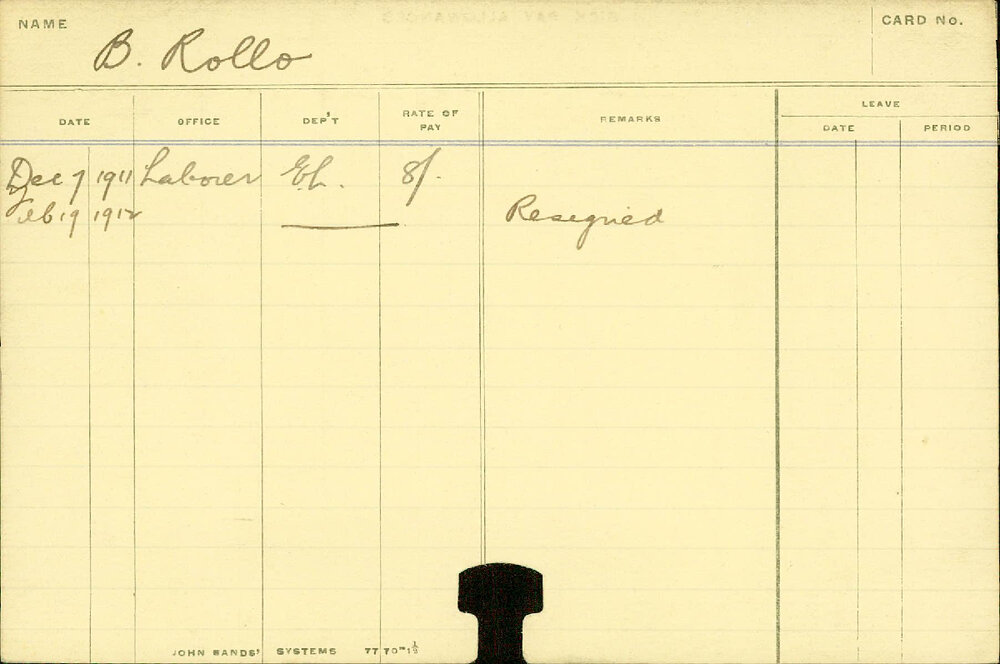 NAME B. Rollo CARD No.
DATE OFFICE DEP'T RATE OF PAY REMARKS LEAVE
DATE PERIOD
Dec 7 1911 Laborer E.L. 8/-
Feb 19 1912 Resigned
JOHN SANDS' SYSTEMS